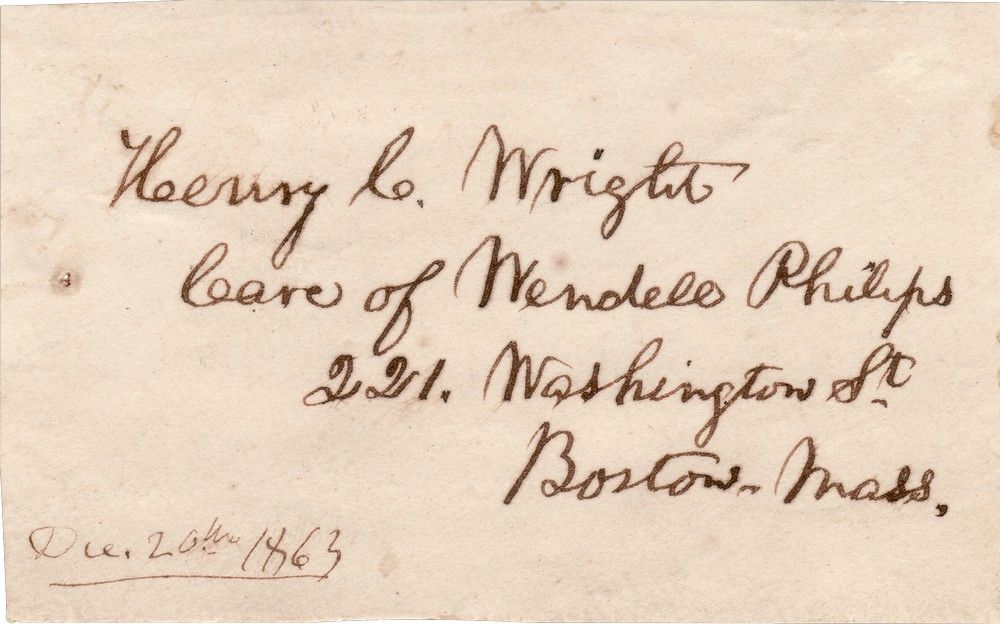 Henry C. Wright
Care of Wendell Philips
221. Washington St.
Boston. Mass.
Dec. 20th 1863